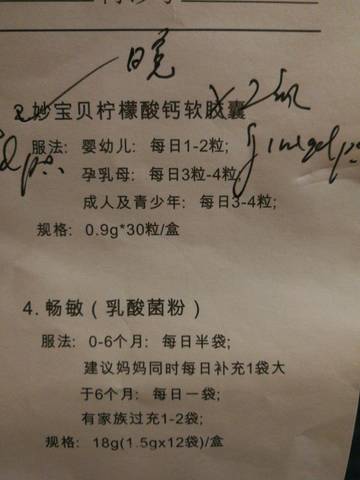 妙宝贝柠檬酸钙软胶囊
服法: 婴幼儿: 每日1-2粒;
孕乳母: 每日3粒-4粒;
成人及青少年: 每日3-4粒;
规格: 0.9g*30粒/盒
4. 畅敏 ( 乳酸菌粉 )
服法: 0-6个月: 每日半袋;
建议妈妈同时每日补充1袋大
于6个月: 每日一袋;
有家族过充1-2袋;
规格: 18g(1.5gx12袋)/盒